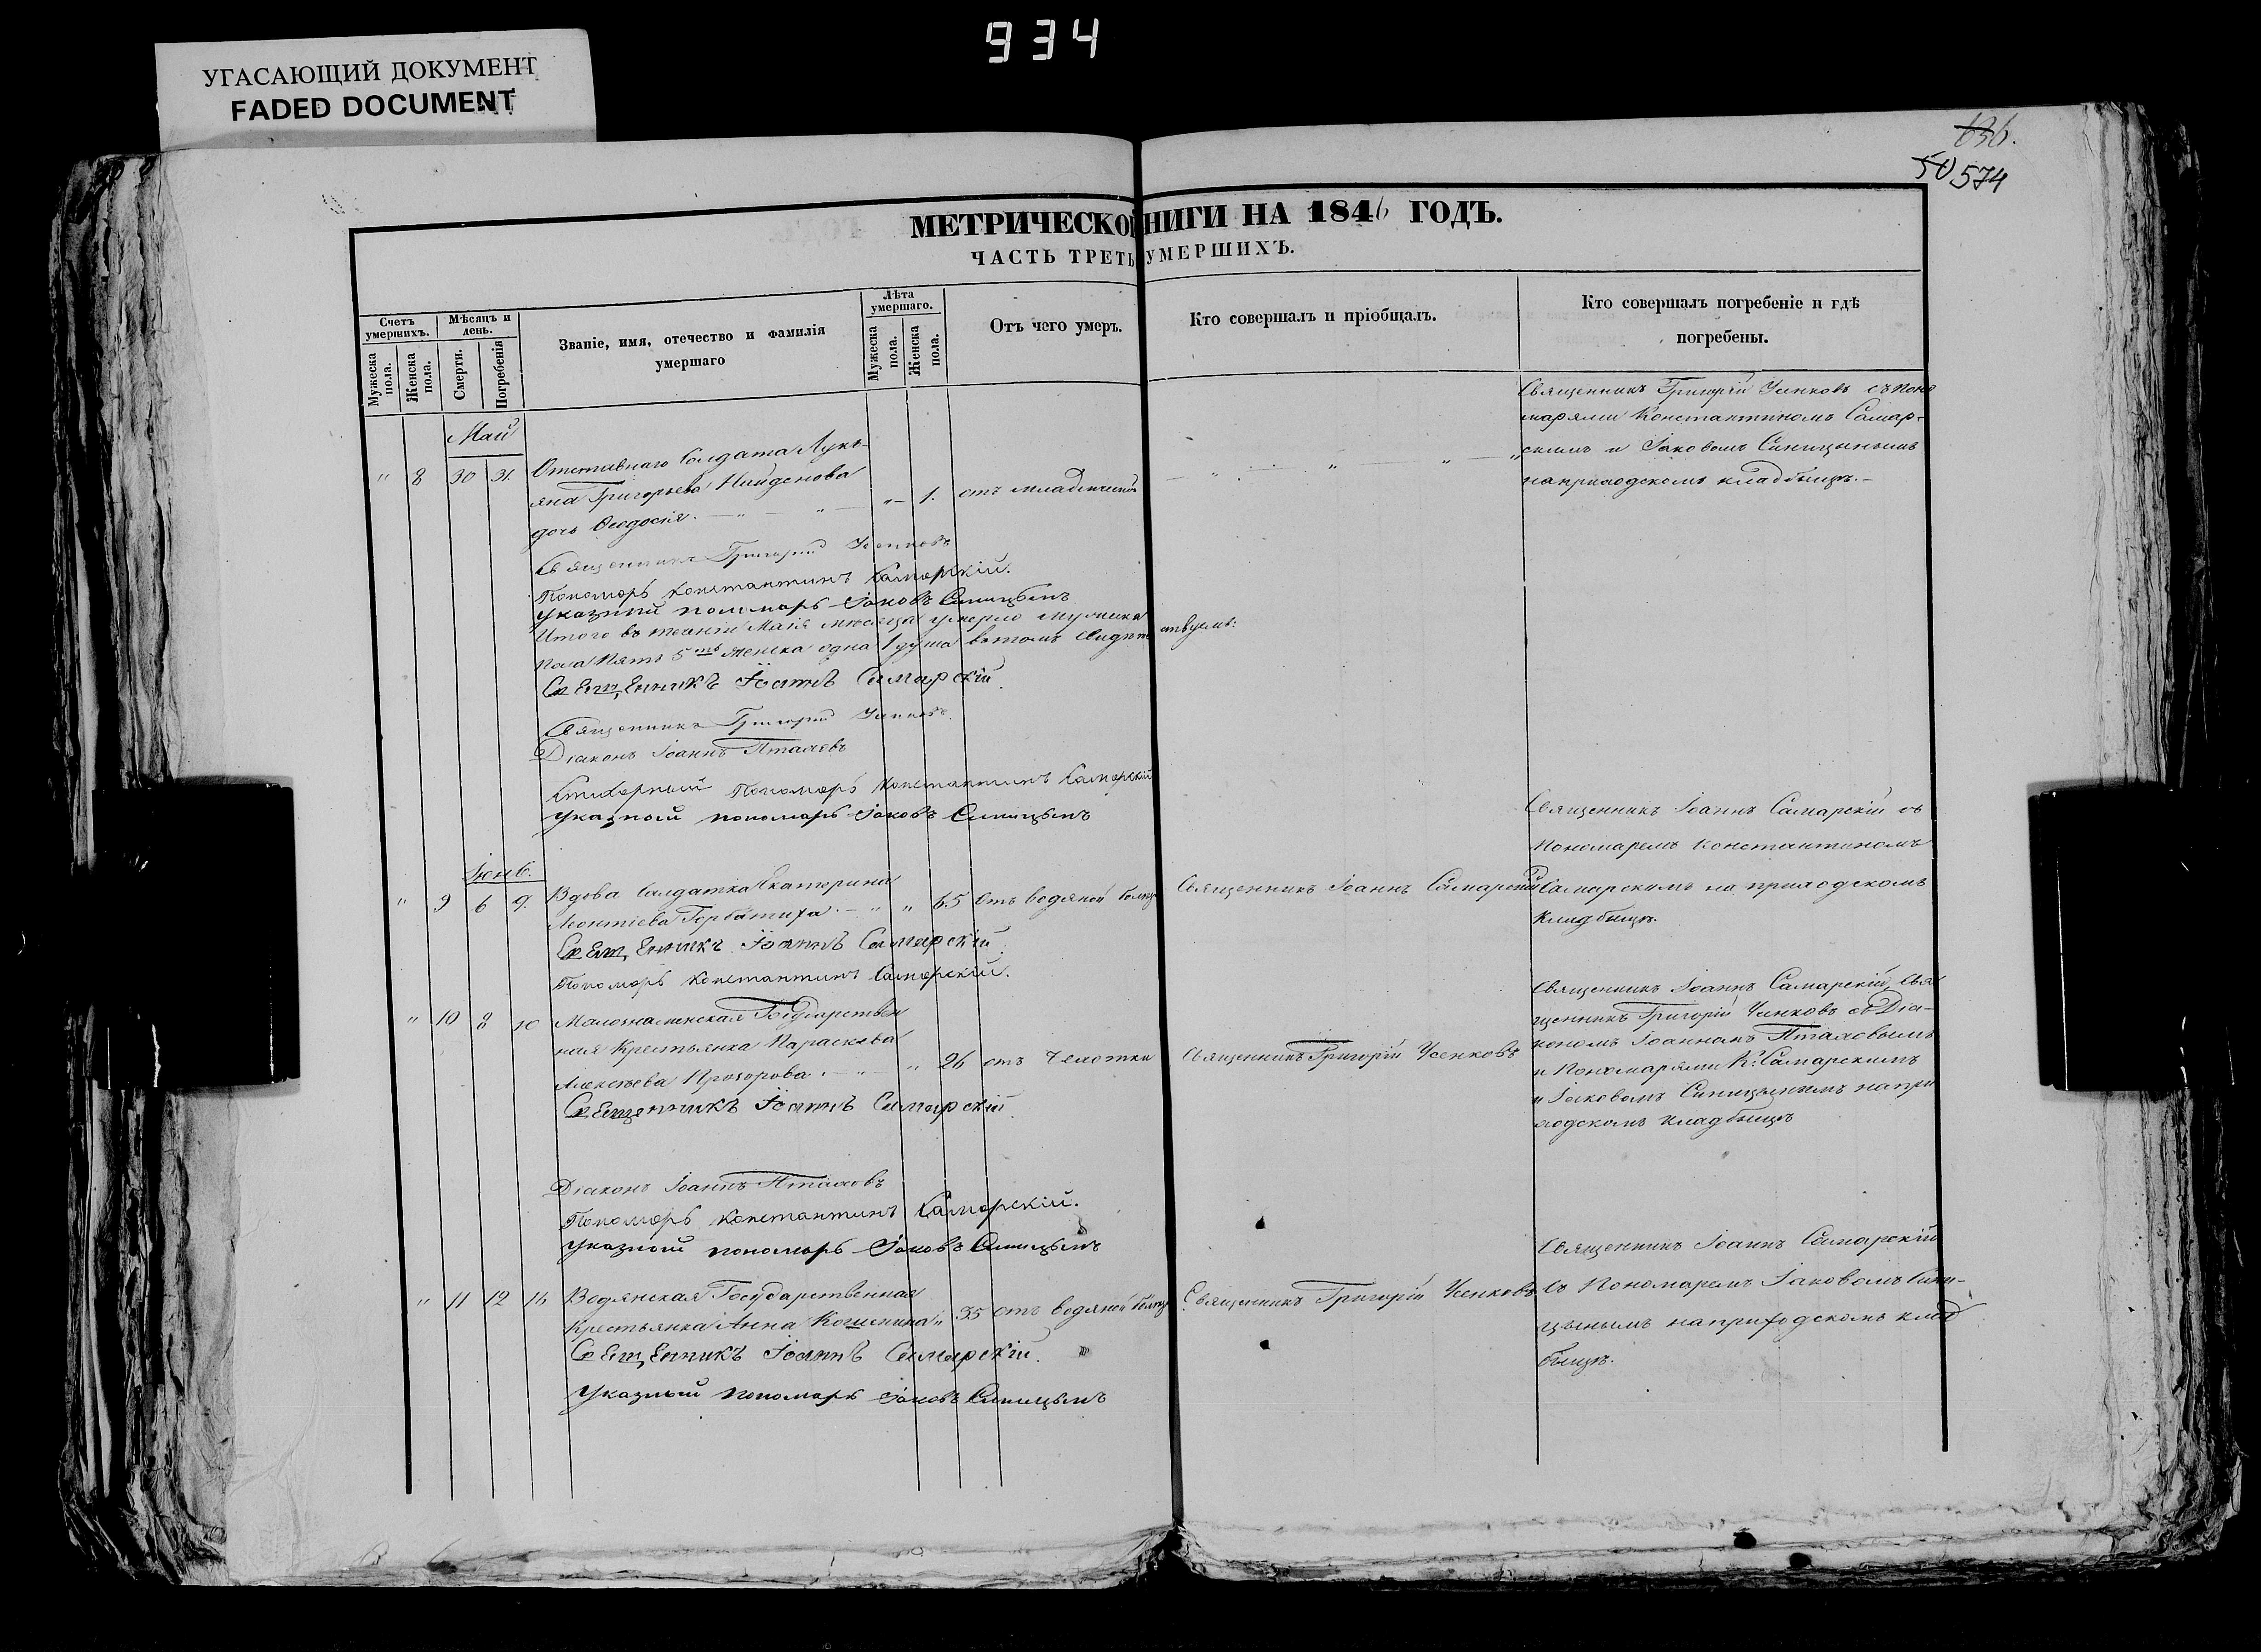 934
УГАСАЮЩИЙ ДОКУМЕНТ
FADED DOCUMENT
636.
50 574
МЕТРИЧЕСКО НИГИ НА 1846 ГОДЪ.
ЧАСТЬ ТРЕТЬ УМЕРШИХЪ.
Счетъ умершихъ.
Мѣсяцъ и день.
Званіе, имя, отечество и фамилія умершаго
Лѣта умершаго.
Отъ чего умеръ.
Кто совершалъ и пріобщалъ.
Кто совершалъ погребеніе и гдѣ погребены.
Мужеска пола.
Женска пола.
Смерти.
Погребенія
Мужеска пола.
Женска пола.
Май
" 8 30 31.
Отставнаго Солдата Лукь-
яна Григорьева Найденова
дочь Феодосія. " 1. отъ младенческой
Священникъ Григорій Усенковъ съ Поно
марями Константиномъ Самар-
скимъ и Іаковомъ Синицынымъ
на приходскомъ кладбищѣ.
Священникъ Григорій Усенковъ
Пономарь Константинъ Самарскій.
Указный пономарь Іаковъ Синицынъ
Итого въ теченіи Маія мѣсяца умерло мужеска
пола пять 5ть женска одна 1 душа въ томъ свидѣте ствуемъ:
Священникъ Іоаннъ Самарскій
Священникъ Григорій Усенковъ.
Діаконъ Іоаннъ Пталовъ
Стихарный Пономарь Константинъ Самарскій
Указной пономарь Іаковъ Синицынъ
Іюнь.
" 9 6 9.
Вдова Салдатка Екатерина
Леонтіева Горбатиха. " " 65 отъ водяной болѣз
Священникъ Іоаннъ Самарскій
Священникъ Іоаннъ Самарскій съ
Пономаремъ Константиномъ
Самарскимъ на приходскомъ
кладбищѣ.
Священникъ Іоаннъ Самарскій
Пономарь Константинъ Самарскій.
" 10 8 10
Государствен
ная Крестьянка Параскева
Алексѣева Прохорова. " " 26 отъ Чехотки
Священникъ Григорій Усенковъ
Священникъ Іоаннъ Самарскій, Свя
щенникъ Григорій Усенковъ съ Діа-
кономъ Іоанномъ Пталовымъ
и Пономарями К: Самарскимъ
и Іаковомъ Синицынымъ на при
ходскомъ кладбищѣ
Священникъ Іоаннъ Самарскій
Діаконъ Іоаннъ Пталовъ
Пономарь Константинъ Самарскій.
Указной пономарь Іаковъ Синицынъ
" 11 12 14
Водянская Государственная
Крестьянка Анна " 35 отъ водяной болѣз
Священникъ Григорій Усенковъ
Священникъ Іоаннъ Самарскій
съ Пономаремъ Іаковомъ Сини-
цынымъ на приходскомъ клад
бищѣ.
Священникъ Іоаннъ Самарскій.
Указный пономарь Іаковъ Синицынъ